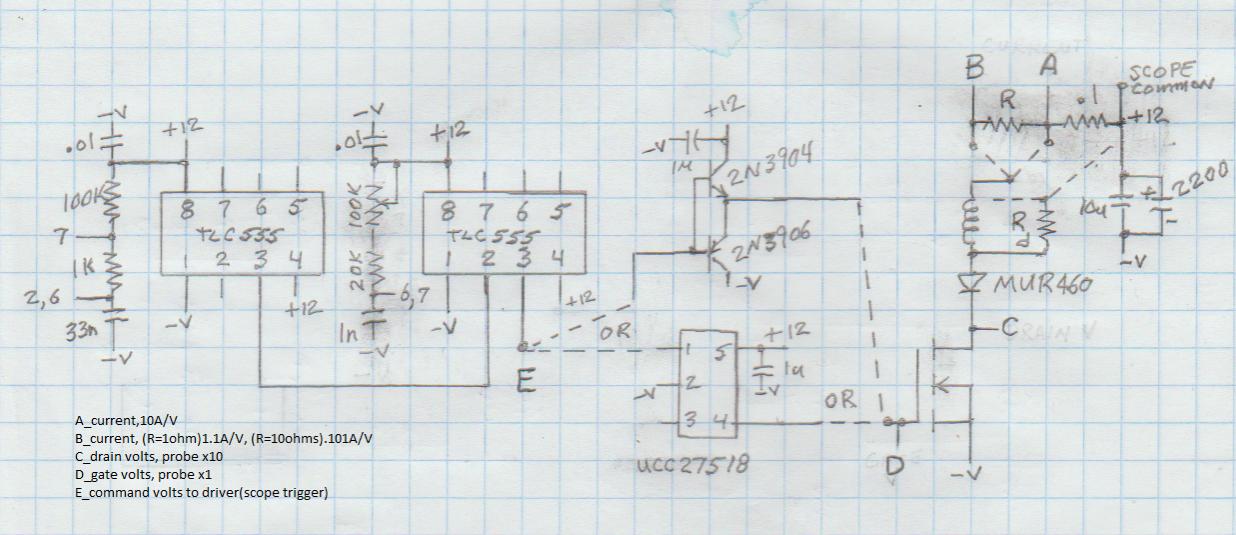 B A SCOPE
COMMON
R .1 +12
-V .01 +12
100K
7
1K
2,6
33n
-V
8 7 6 5
TLC555
1 2 3 4
-V +12
-V .01 +12
100K
20K
6,7
1n
-V
8 7 6 5
TLC555
1 2 3 4
-V +12
E
OR
+12
-V 1u
2N3904
2N3906
-V
1 5 +12
1u
-V
-V 2
3 4
UCC27518
OR
D
Rd
10u + 2200 -
-V
MUR460
C
-V
A_current,10A/V
B_current, (R=1ohm)1.1A/V, (R=10ohms).101A/V
C_drain volts, probe x10
D_gate volts, probe x1
E_command volts to driver(scope trigger)